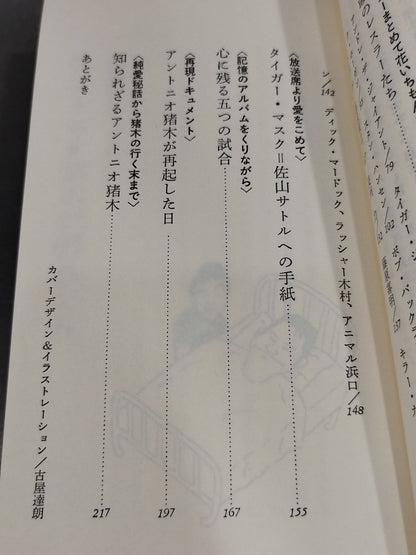 まとめて花いちもん
のレスラーたち
ン/142 ディック・マードック、ラッシャー木村、アニマル浜口/148
〈放送席より愛をこめて〉
タイガー・マスク＝佐山サトルへの手紙……155
〈記憶のアルバムをくりながら〉
心に残る五つの試合……167
〈再現ドキュメント〉
アントニオ猪木が再起した日……197
〈純愛秘話から猪木の行く末まで〉
知られざるアントニオ猪木……217
あとがき
カバーデザイン＆イラストレーション/古屋達朗